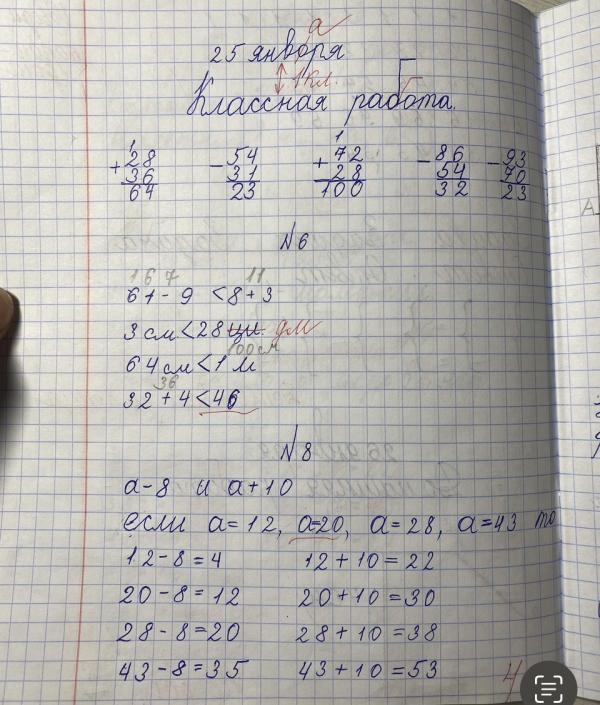 а
25 января
1 кл.
Классная работа.
1 1
+28 -54 +72 -86 -93
36 31 28 54 70
64 23 100 32 23
N 6
16 7 11
61 - 9 < 8 + 3
3 см < 28 цм. дм
100 см
64 см < 1 м
36
32 + 4 < 46
N 8
а - 8 и а + 10
если а = 12, а=20, а = 28, а = 43 то
12 - 8 = 4 12 + 10 = 22
20 - 8 = 12 20 + 10 = 30
28 - 8 = 20 28 + 10 = 38
43 - 8 = 35 43 + 10 = 53
4